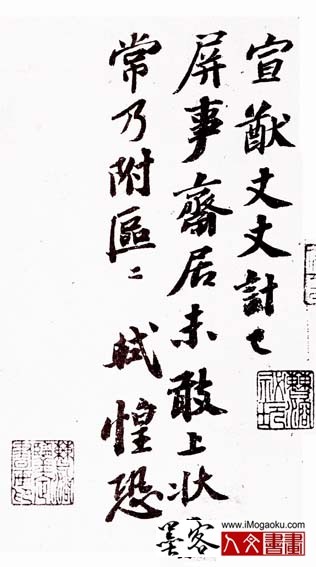 宣猷丈丈計已
屏事齋居未敢上狀
常乃附區〻 軾惶恐
墨客
www.iMogaoku.com
人文書畫